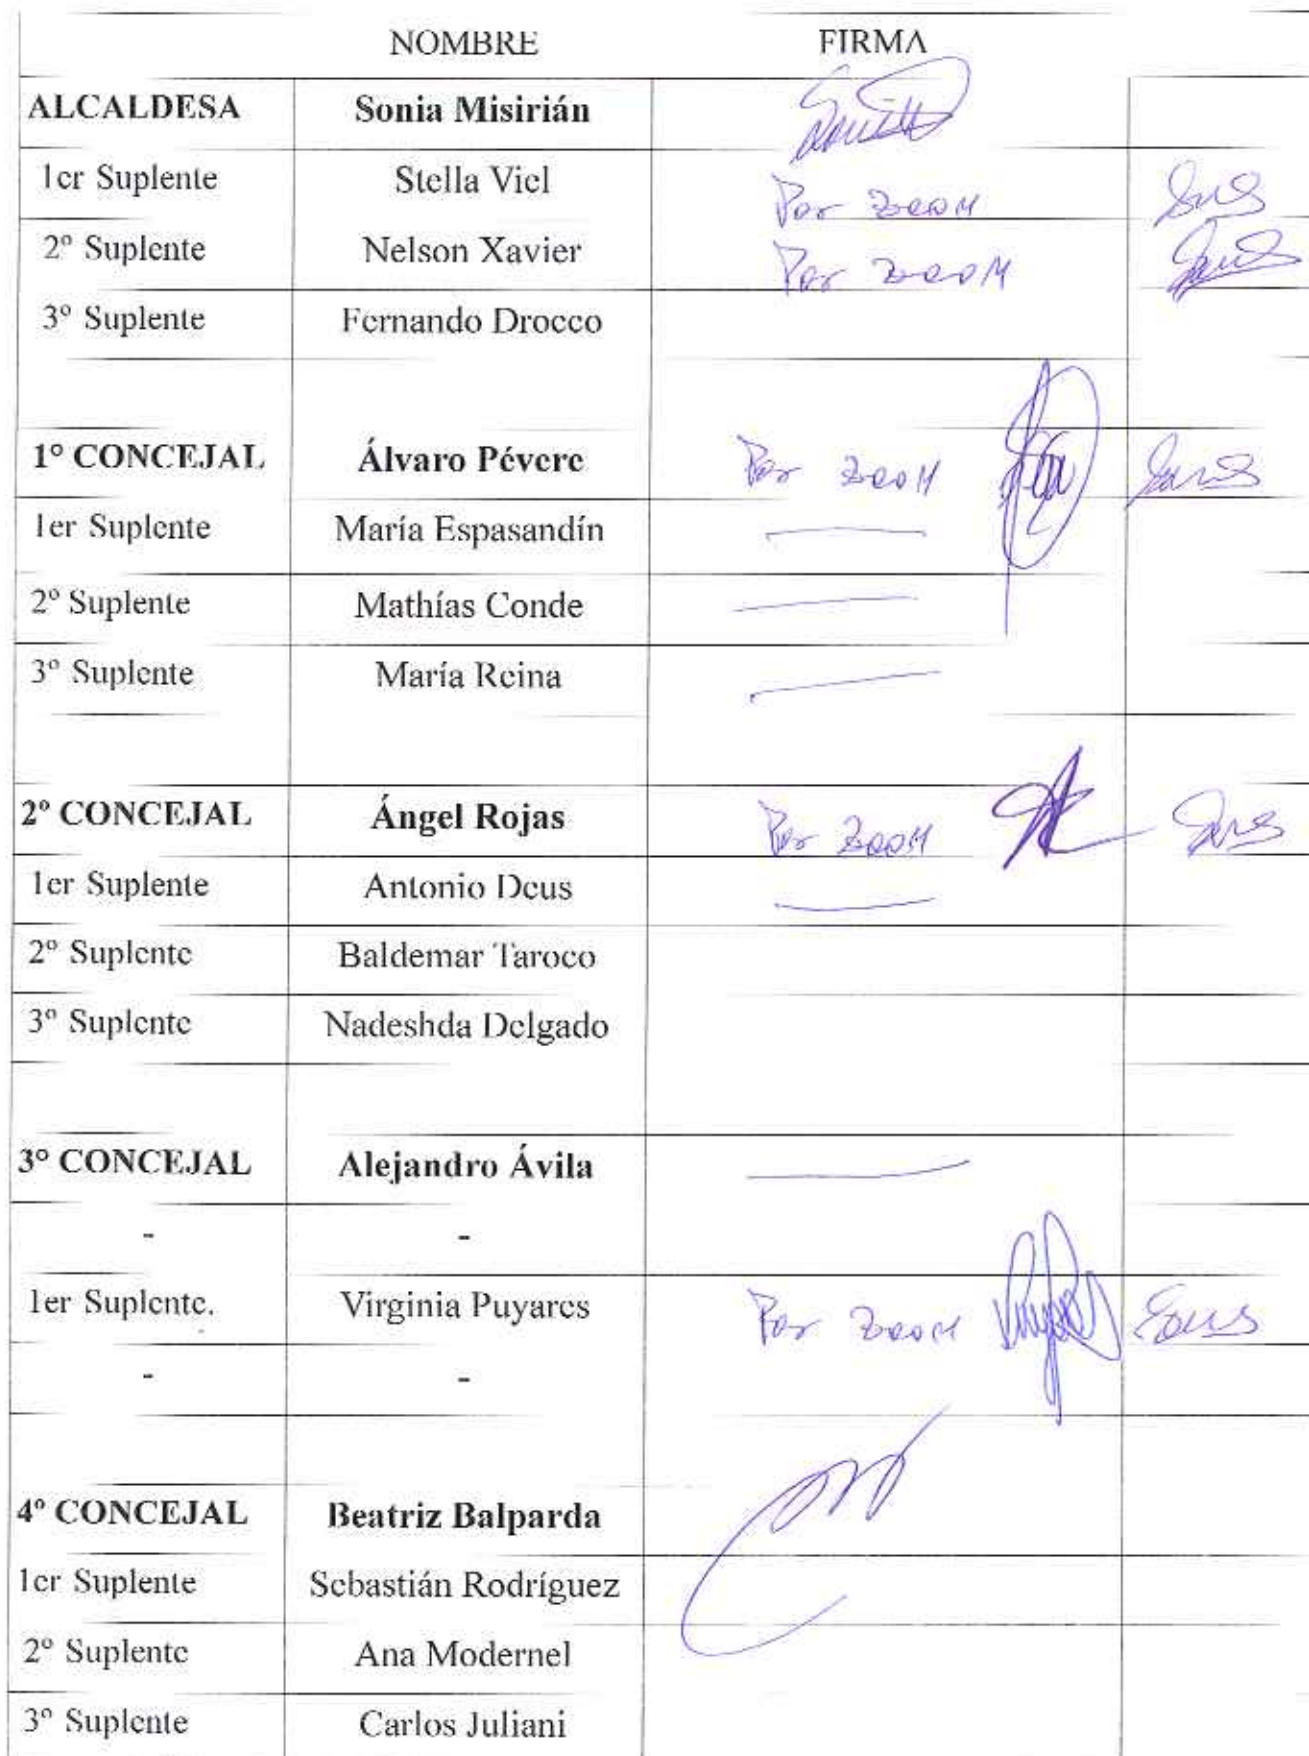 NOMBRE FIRMA
ALCALDESA Sonia Misirián
1er Suplente Stella Viel Por Zoom
2º Suplente Nelson Xavier Por Zoom
3º Suplente Fernando Drocco
1º CONCEJAL Álvaro Pévere Por Zoom
1er Suplente María Espasandín
2º Suplente Mathías Conde
3º Suplente María Reina
2º CONCEJAL Ángel Rojas Por Zoom
1er Suplente Antonio Deus
2º Suplente Baldemar Taroco
3º Suplente Nadeshda Delgado
3º CONCEJAL Alejandro Ávila
- -
1er Suplente. Virginia Puyares Por Zoom
- -
4º CONCEJAL Beatriz Balparda
1er Suplente Sebastián Rodríguez
2º Suplente Ana Modernel
3º Suplente Carlos Juliani